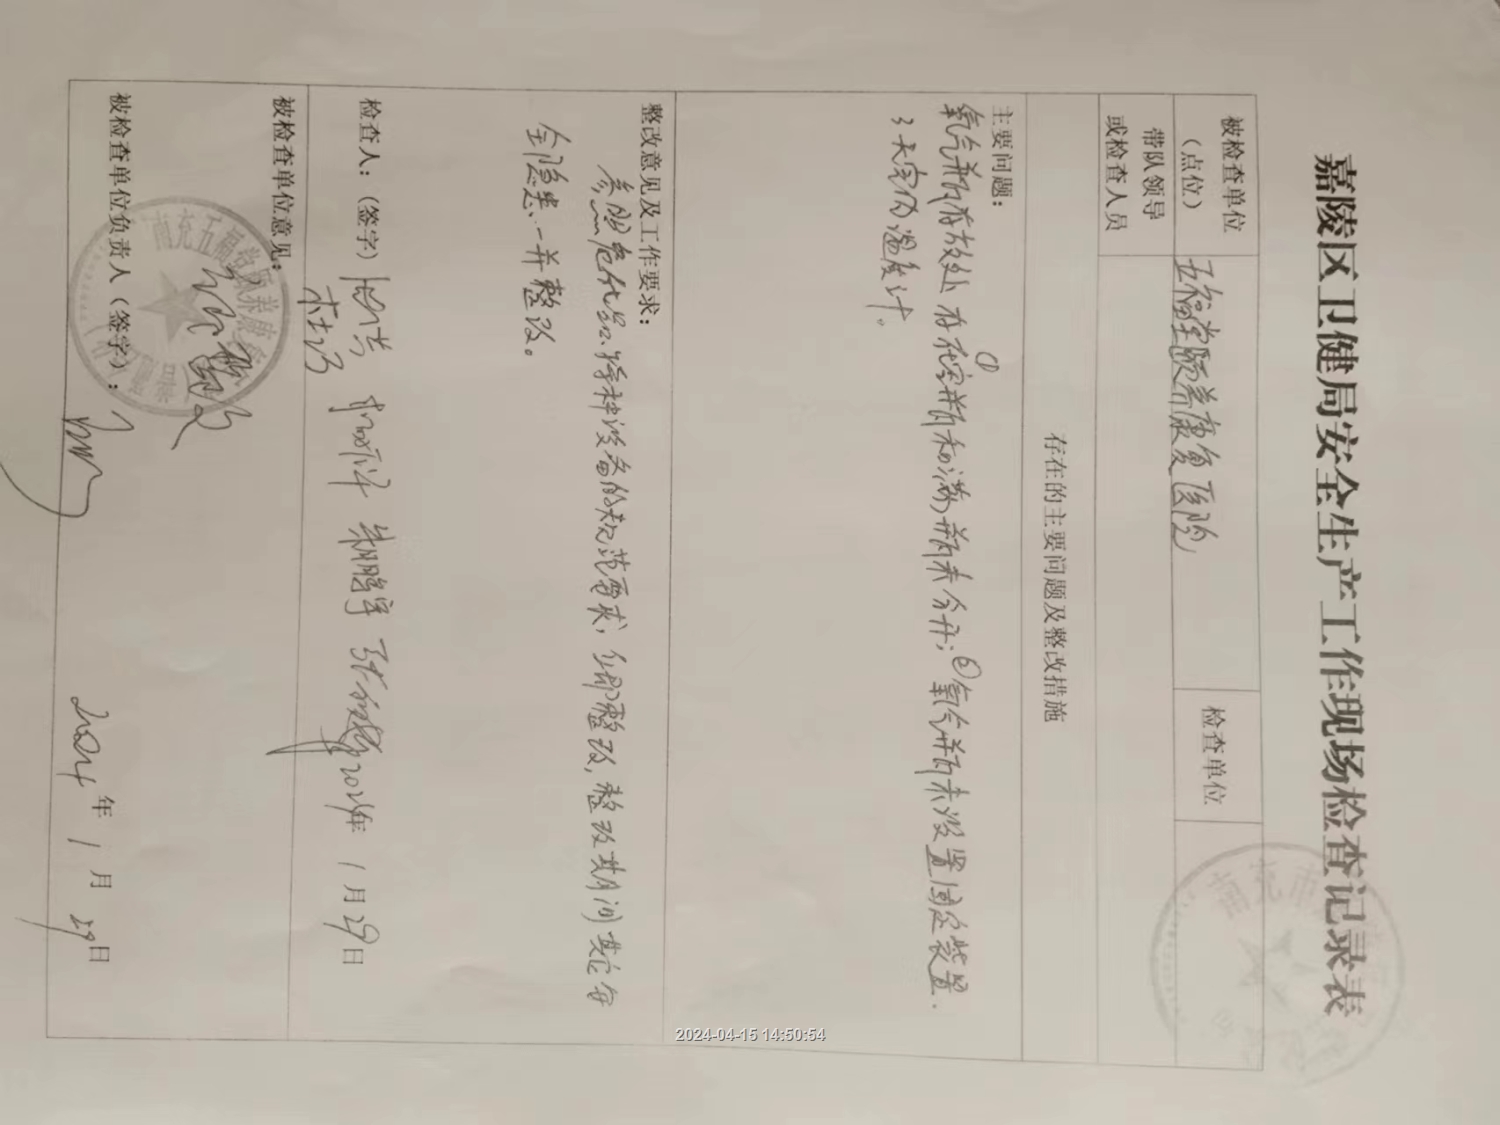 嘉陵区卫健局安全生产工作现场检查记录表
被检查单位
（点位）
五福堂颐养康复医院
检查单位
带队领导
或检查人员
存在的主要问题及整改措施
主要问题：
氧气瓶存放处存在①空瓶和满瓶未分开；②氧气瓶未设置固定装置.
3 无室内温度计。
整改意见及工作要求：
参照危化品、特种设备的规范要求，立即整改，整改期间其它安
全隐患、一并整改。
检查人：（签字）
2024年 1 月 29 日
被检查单位意见：
被检查单位负责人（签字）：
2024 年 1 月 29 日
南充五福堂颐养康复
南充市
2024-04-15 14:50:54